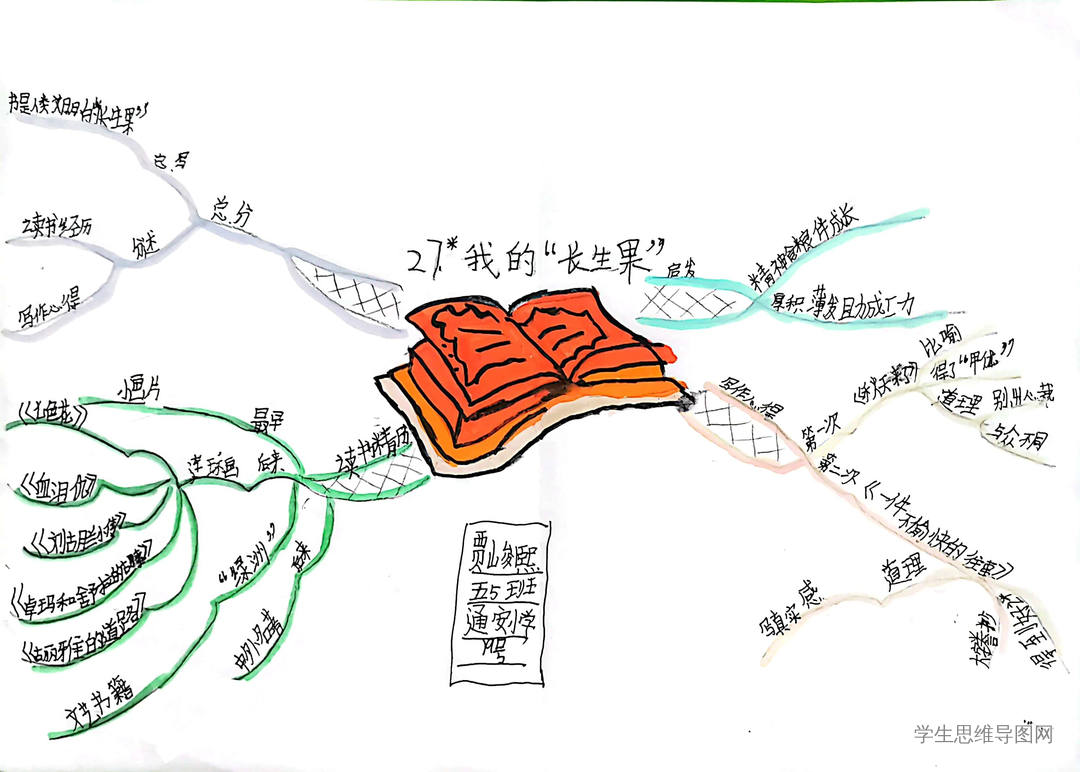 27.*我的“长生果”
书是人类文明的“长生果”
总写
总分
分述
读书经历
写作心得
启发
精神食粮伴成长
累积·薄发助成功
写作心得
第一次
《秋天来了》
比喻
得了“甲优”
道理
别出心裁
与众不同
第二次《一件不愉快的往事》
道理
写真实感
大梦抄
得到好评
读书精历
最早
小画片
后来
连环画
《七色花》
《血泪仇》
《刘胡兰小传》
《古丽雅的道路》
“绿洲”
文艺书籍
后来
中外名著
贾峻熙
五5班
通安小学
19号
学生思维导图网